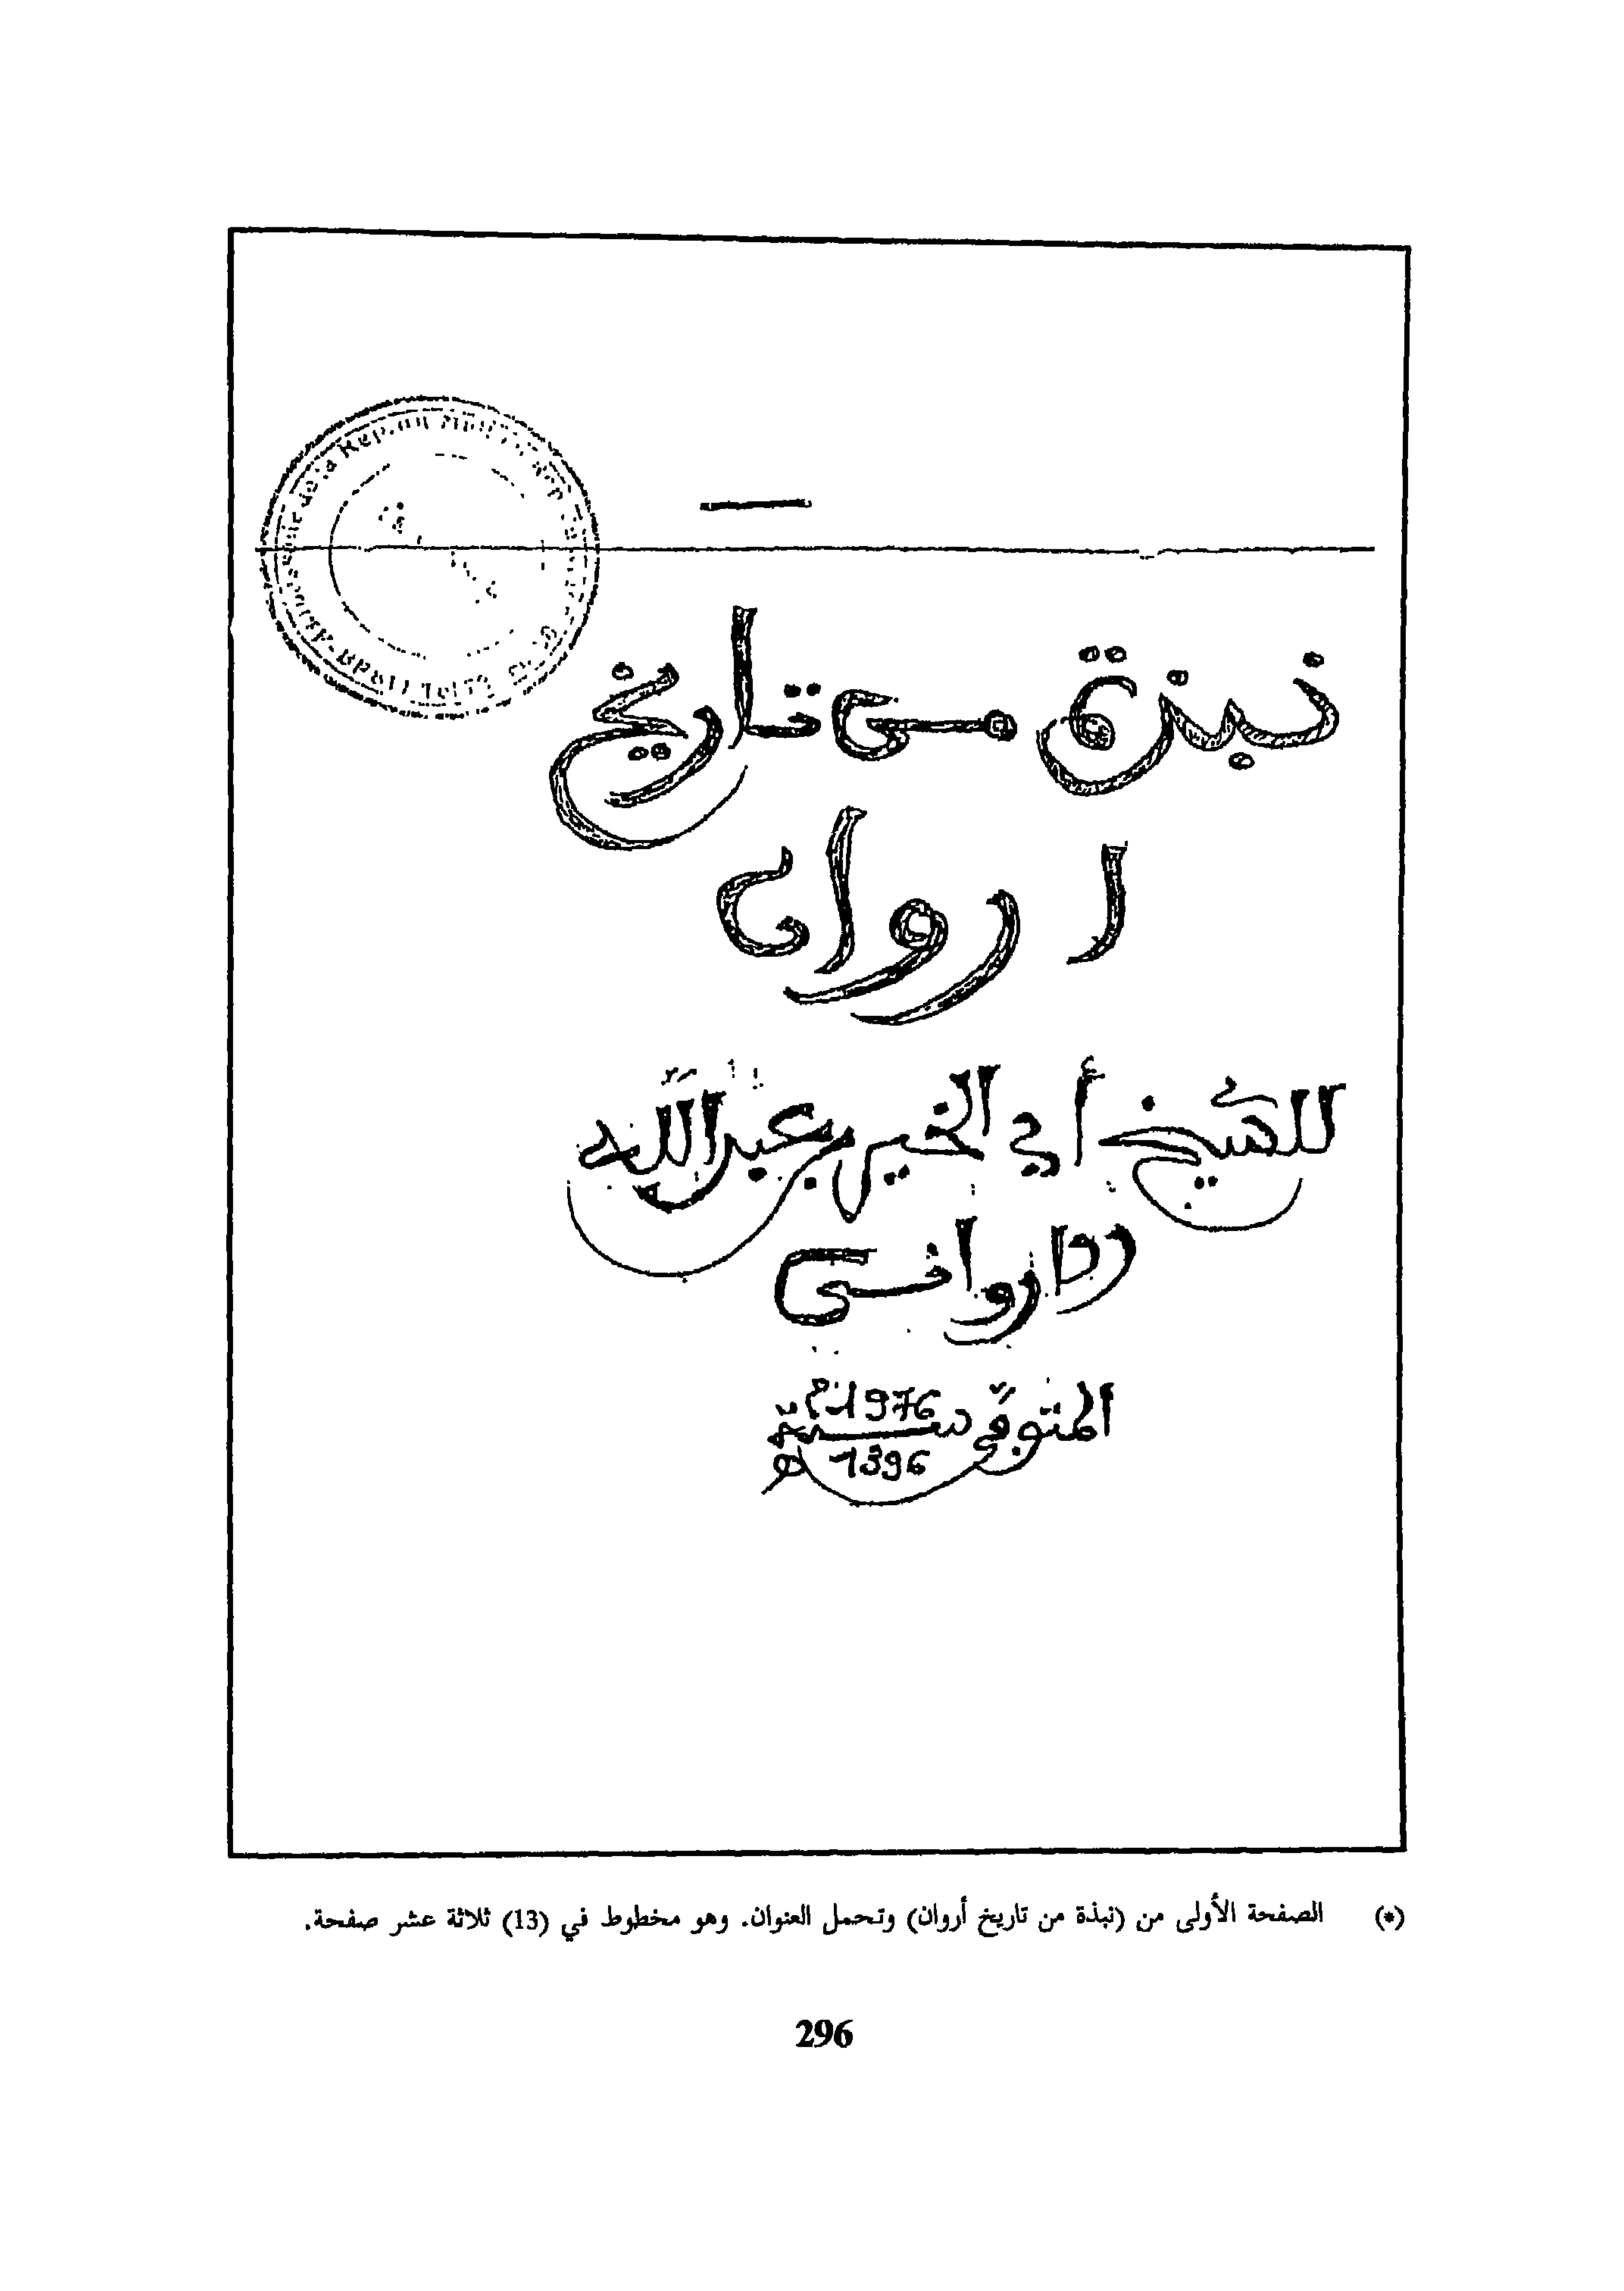 نبذة من تاريخ
اروان
للشيخ أبي الخير بن عبد الله
الارواني
المتوفى سنة 1976م
1396 ه
(*) الصفحة الأولى من (نبذة من تاريخ أروان) وتحمل العنوان. وهو مخطوط في (13) ثلاثة عشر صفحة.
296